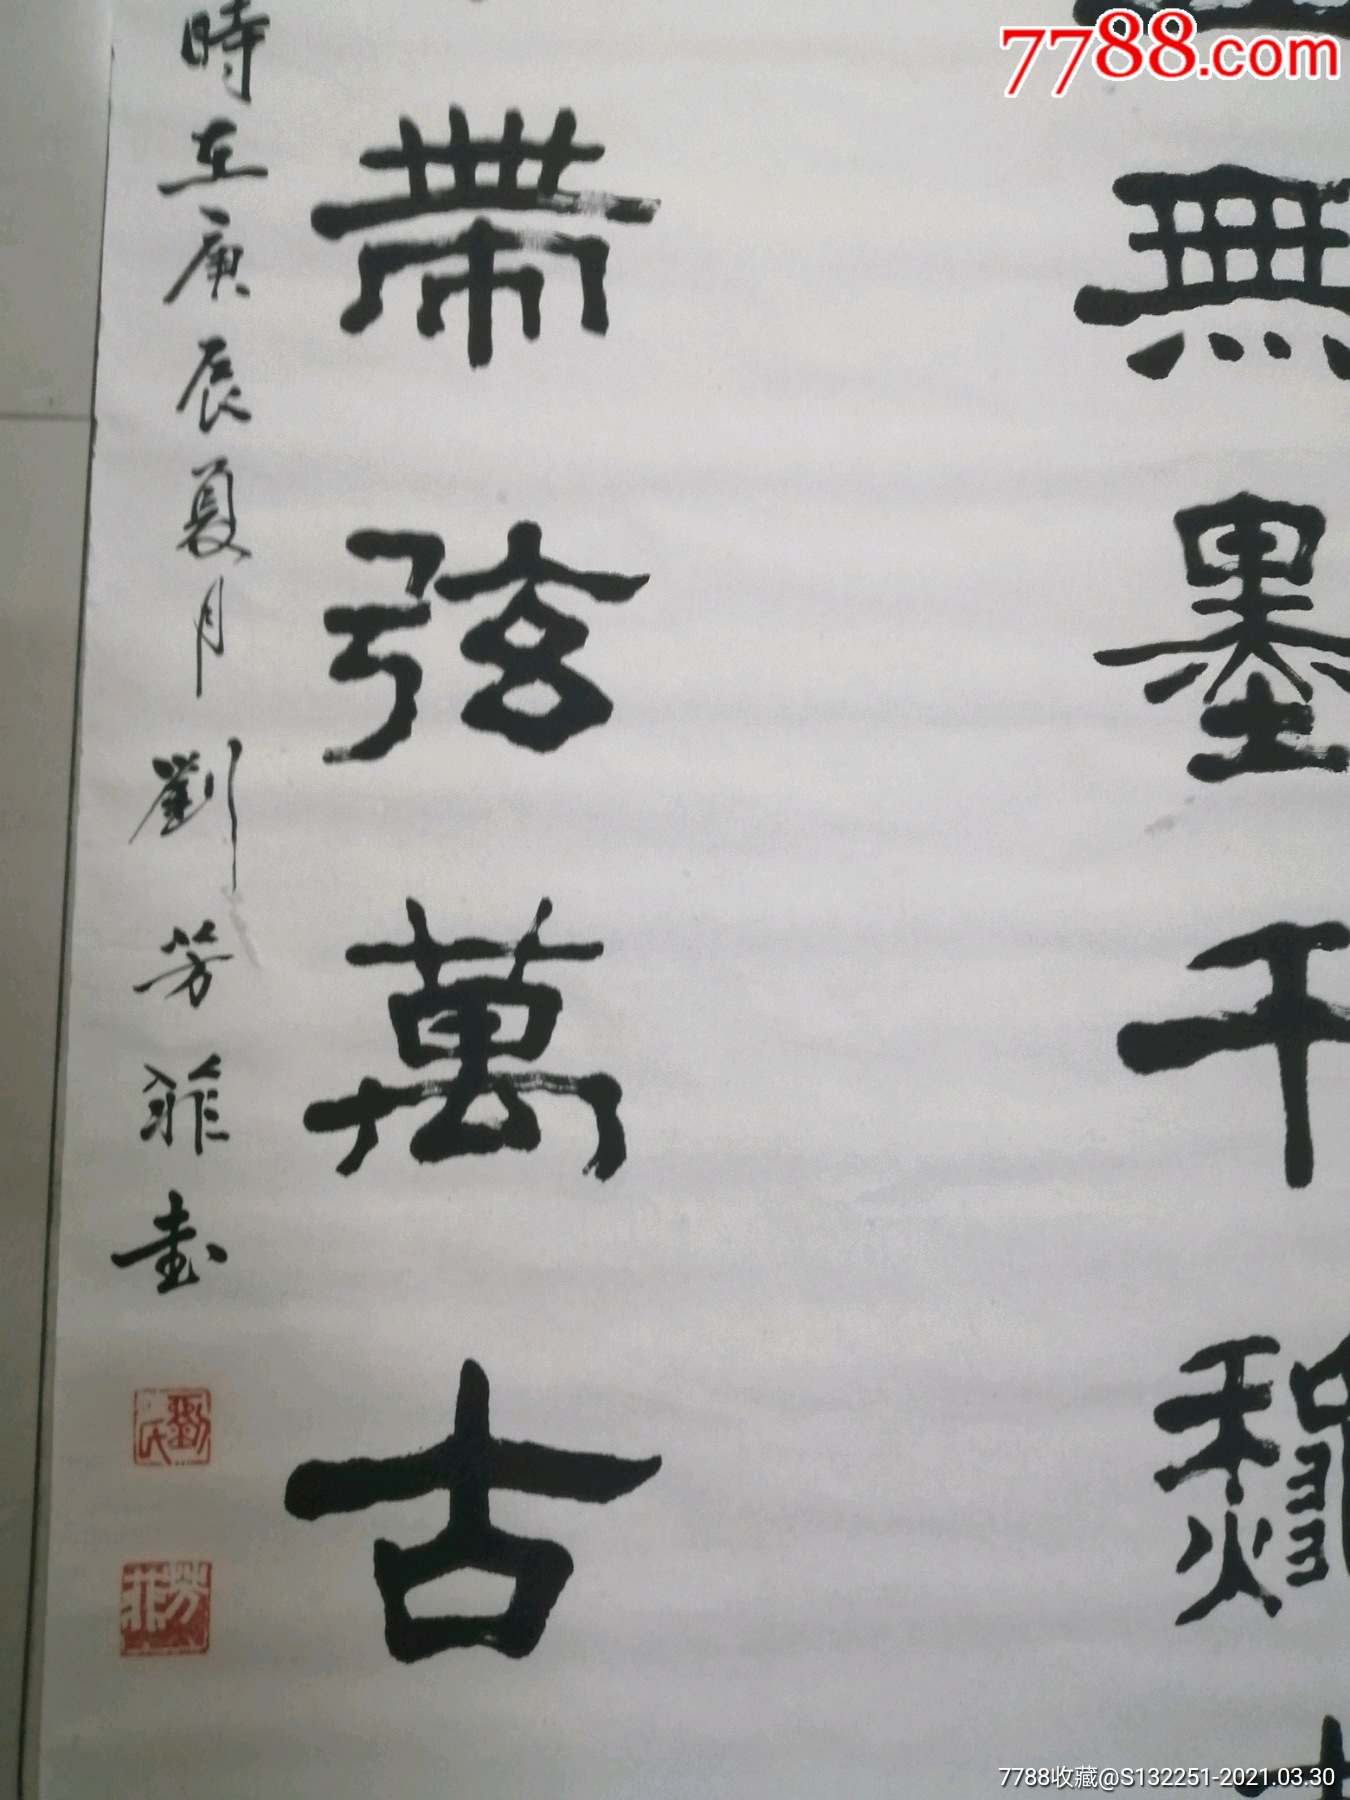 7788.com
無墨千龝
帶弦萬古
時在庚辰夏月 劉芳菲書
劉氏
芳菲
7788收藏@S132251-2021.03.30